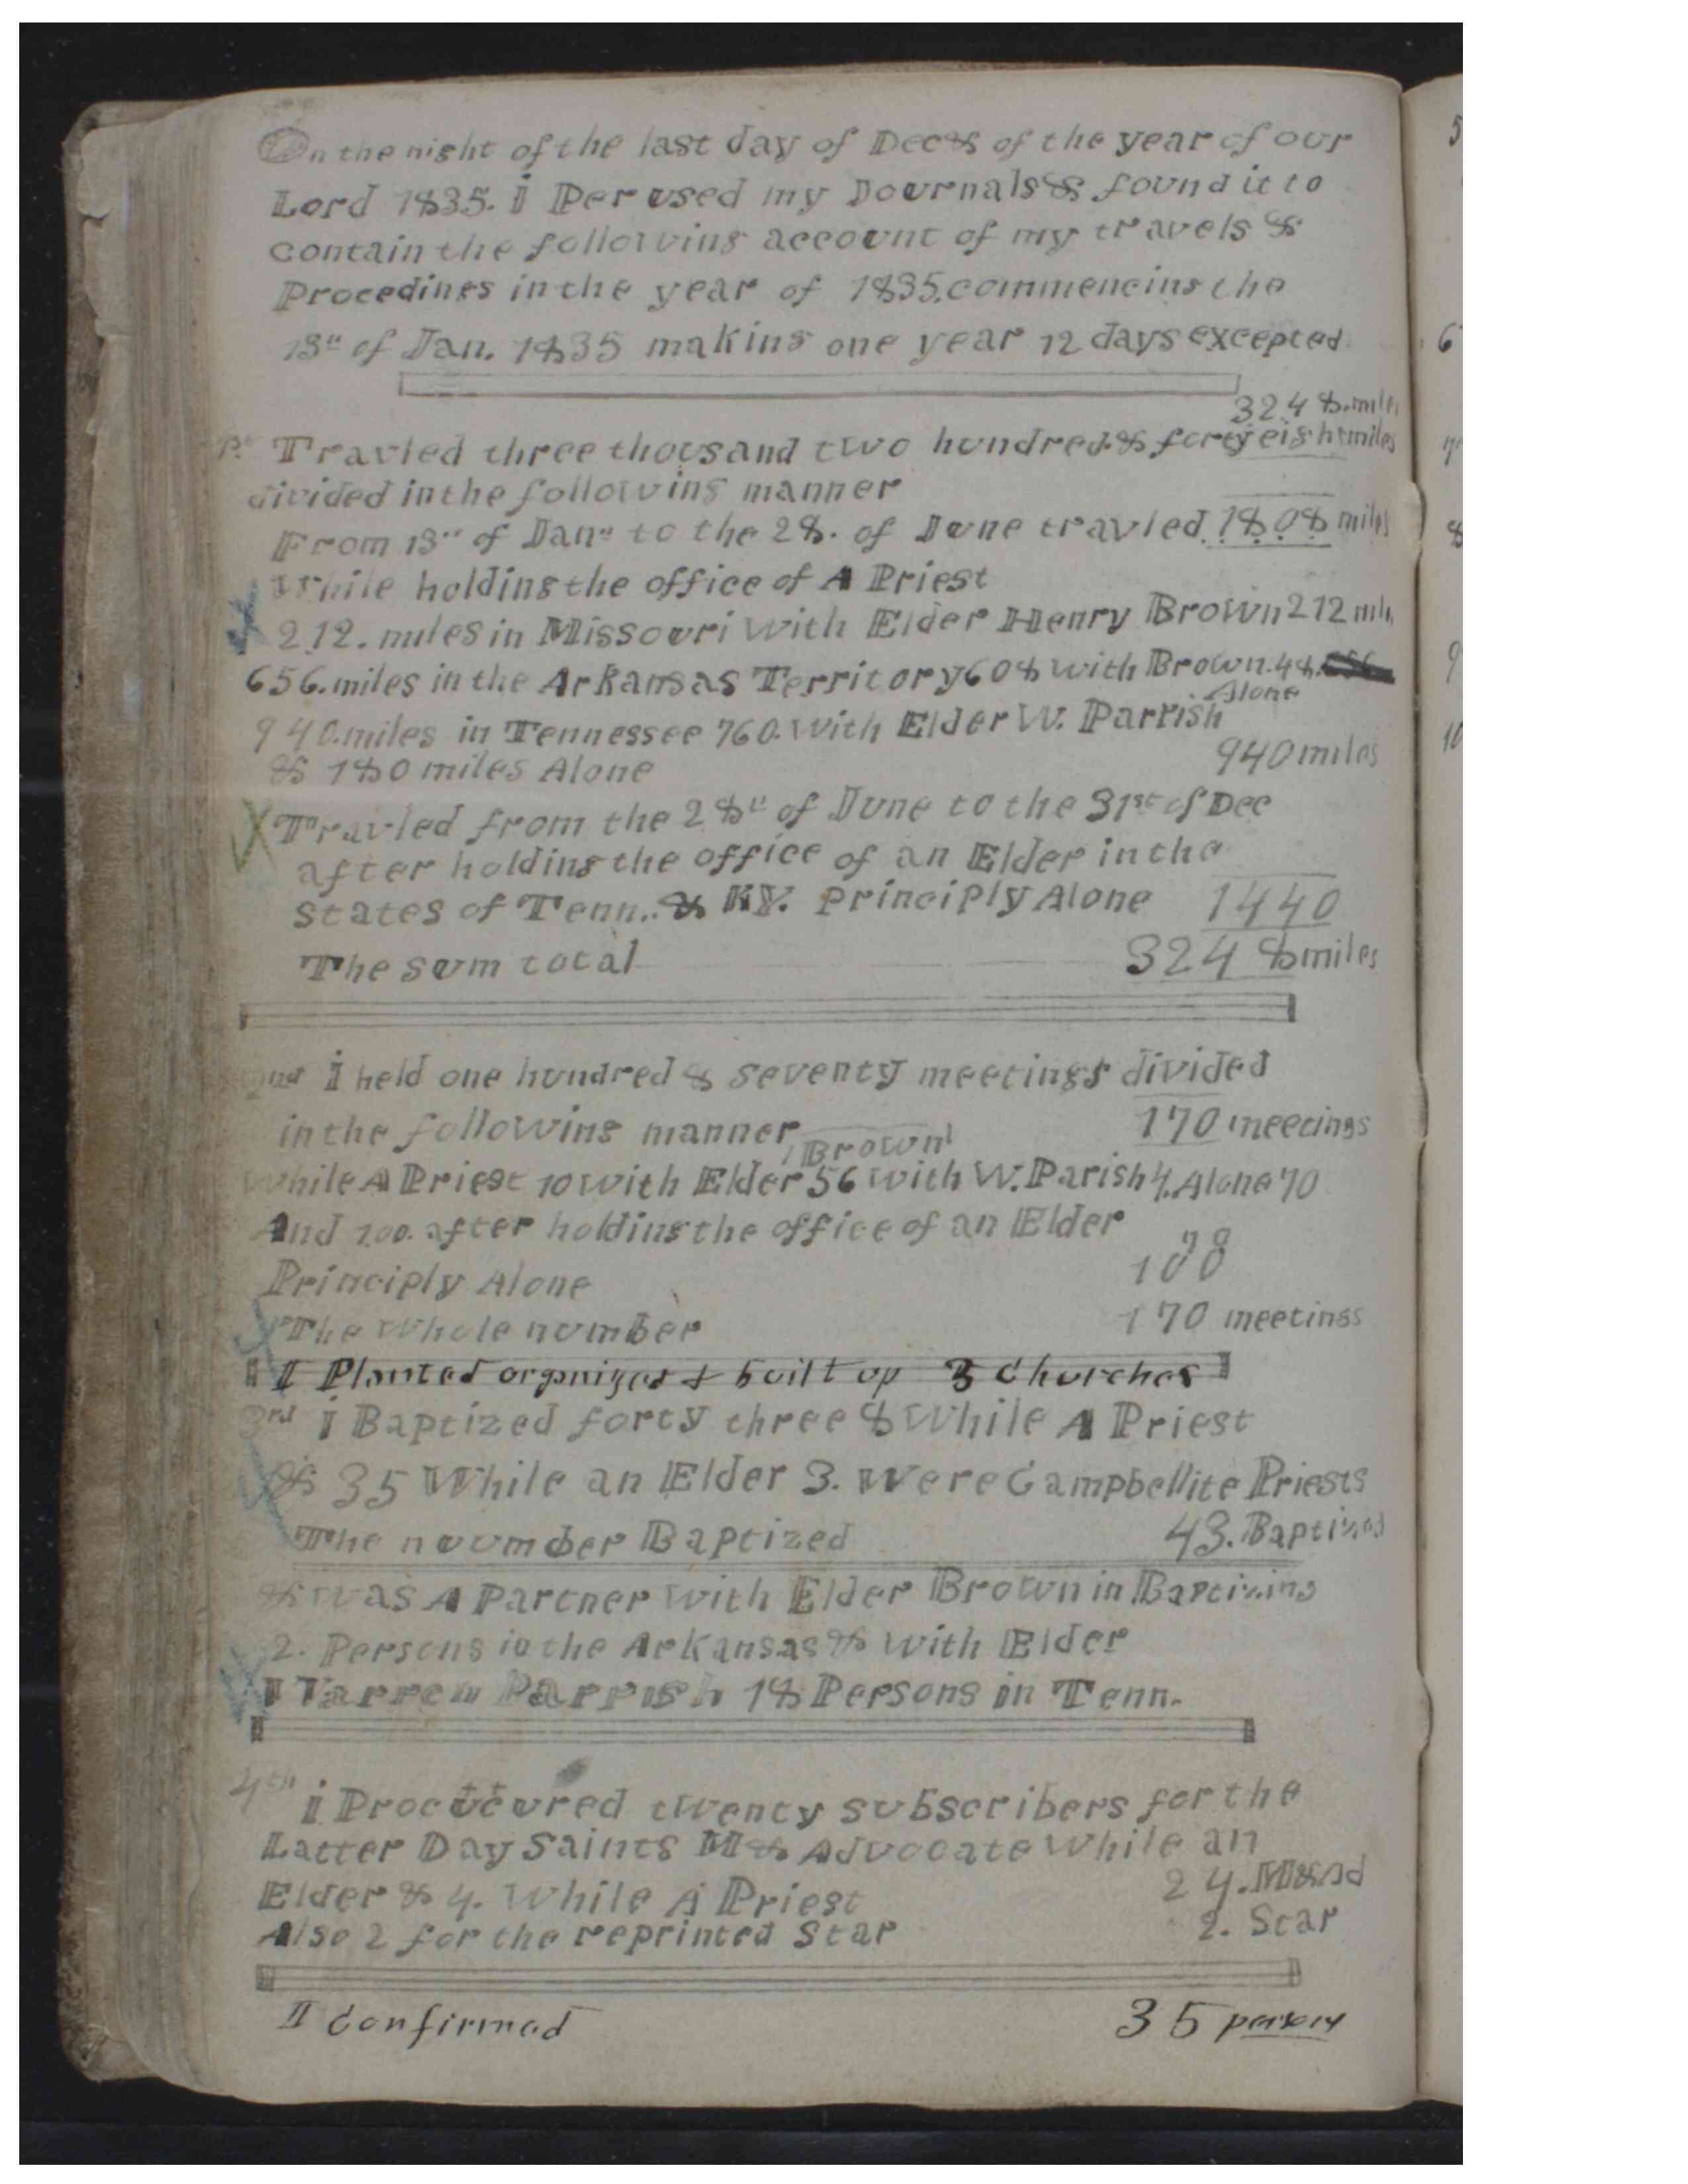 On the night of the last day of Dec & of the year of our
Lord 1835. I Perused my Journals & found it to
contain the following account of my travels &
Procedings in the year of 1835. commencing the
13th of Jan. 1835 making one year 12 days excepted
3248. miles
1st Travled three thousand two hundred & forty eight miles
divided in the following manner
From 13th of Jan.y to the 28. of June travled 1808 miles
While holding the office of A Priest
212. miles in Missouri with Elder Henry Brown 212 mile
656. miles in the Arkansas Territory 608 with Brown. 48. 656
Alone
940. miles in Tennessee 760. with Elder W. Parrish
& 180 miles Alone 940 miles
Travled from the 28th of June to the 31st of Dec
after holding the office of an Elder in the
States of Tenn. & KY. Principly Alone 1440
The sum total 3248 miles
2nd I held one hundred & seventy meetings divided
in the following manner 170 meetings
Brown
While A Priest 10 with Elder 56 with W. Parish 4. Alone 70
And 100. after holding the office of an Elder
Principly Alone 100
The Whole number 170 meetings
I Planted organized & built up 3 Churches
3rd I Baptized forty three 8 While A Priest
& 35 While an Elder 3. were Campbellite Priests
The nuumber Baptized 43. Baptized
& was A Partner with Elder Brown in Baptizing
2. Persons in the Arkansas & with Elder
Warren Parrish 18 Persons in Tenn.
4th I Procuured twenty subscribers for the
Latter Day Saints M & Advocate while an
Elder & 4. While A Priest 24. M & Ad
Also 2 for the reprinted Star 2. Star
I Confirmed 35 persons
5
6
7
8
9
10